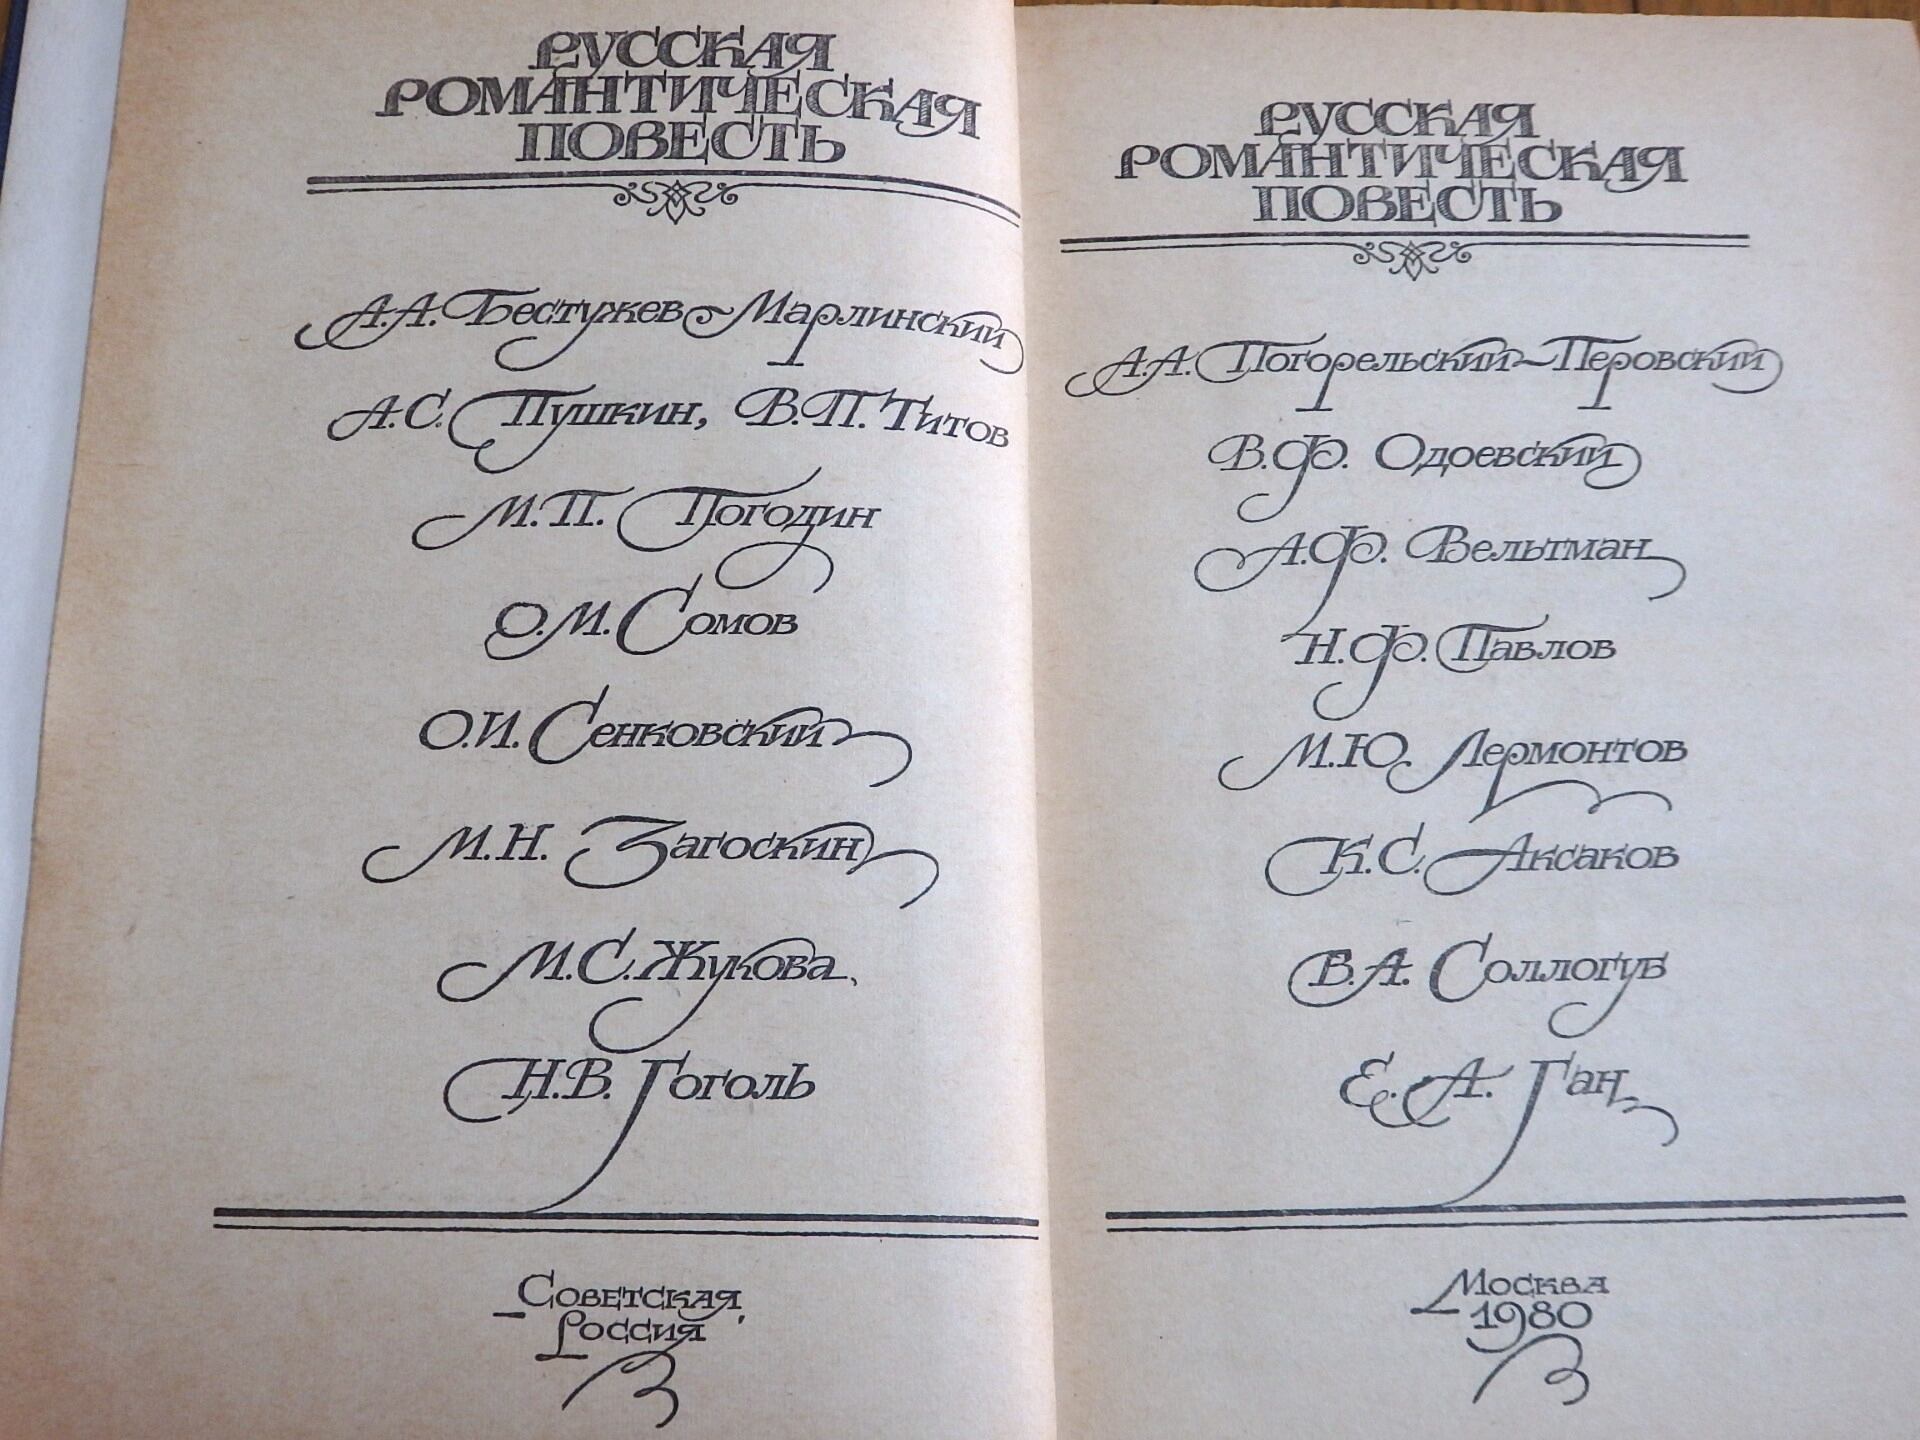 РУССКАЯ
РОМАНТИЧЕСКАЯ
ПОВЕСТЬ
А.А. Бестужев-Марлинский
А.С. Пушкин, В.П. Титов
М.П. Погодин
О.М. Сомов
О.И. Сенковский
М.Н. Загоскин
М.С. Жукова
Н.В. Гоголь
Советская
Россия
РУССКАЯ
РОМАНТИЧЕСКАЯ
ПОВЕСТЬ
А.А. Погорельский-Перовский
В.Ф. Одоевский
А.Ф. Вельтман
Н.Ф. Павлов
М.Ю. Лермонтов
К.С. Аксаков
В.А. Соллогуб
Е.А. Ган
Москва
1980